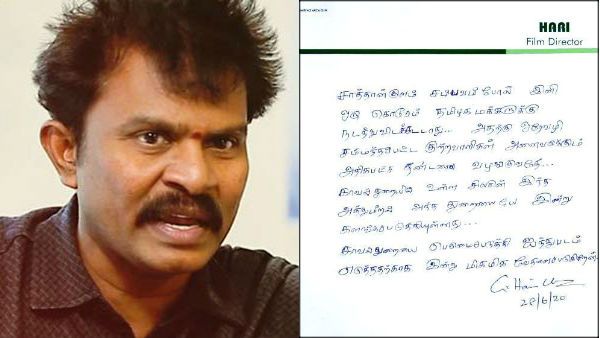 HARI
Film Director
சாத்தான்குளம் சம்பவம் போல் இனி
ஒரு கொடூரம் தமிழக மக்களுக்கு
நடந்துவிடக்கூடாது... அதற்கு ஒரேவழி
சம்பந்தப்பட்ட குற்றவாளிகள் அனைவருக்கும்
அதிகபட்ச தண்டனை வழங்குவதே...
காவல்துறையில் உள்ள சிலரின் இந்த
அத்துமீறல் அந்த துறையையே இன்று
களங்கப்படுத்தியுள்ளது...
காவல்துறையை பெருமைப்படுத்தி ஐந்துபடம்
எடுத்ததற்காக இன்று மிகமிக வேதனைப்படுகிறேன்
28/6/20